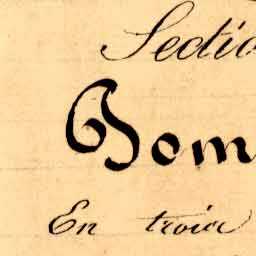 Sectio
Dom
En trois